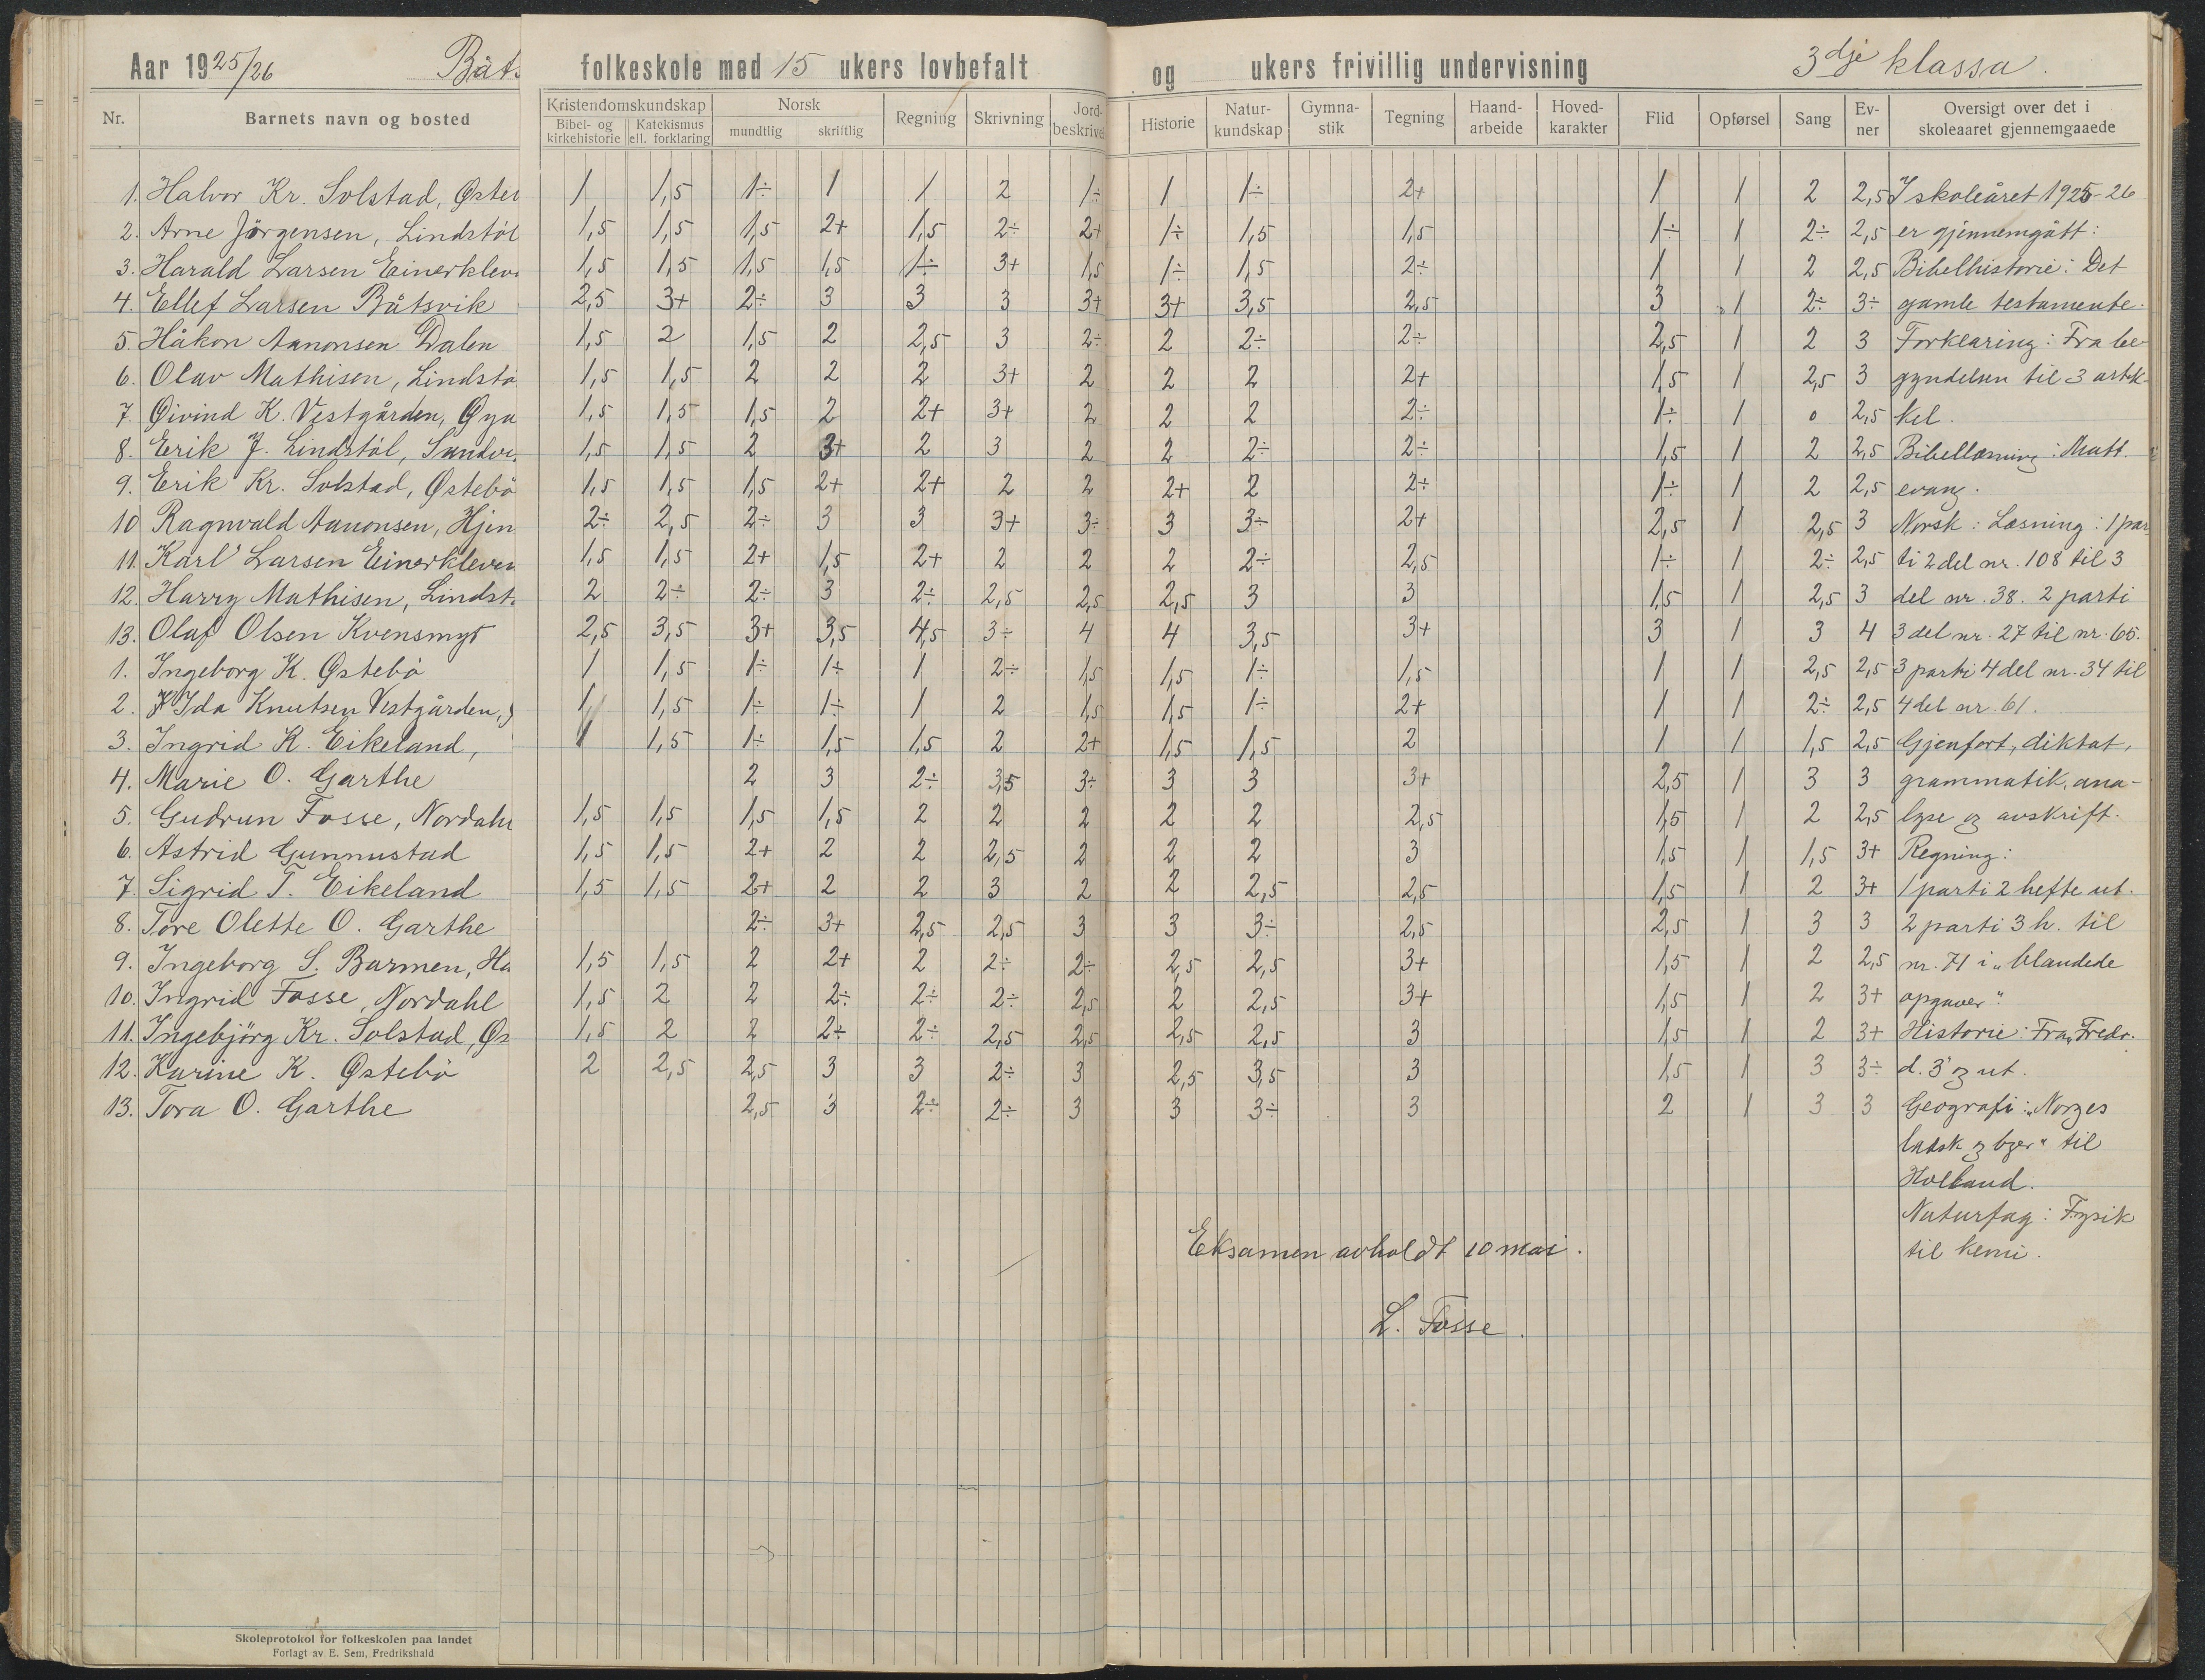 Aar 1925/26 Båts folkeskole med 15 ukers lovbefalt og ukers frivillig undervisning 3dje klassa.
Nr. Barnets navn og bosted Kristendomskundskap Norsk Regning Skrivning Jord-beskrive Historie Natur-kundskap Gymna-stik Tegning Haand-arbeide Hoved-karakter Flid Opførsel Sang Ev-ner Oversigt over det i skoleaaret gjennemgaaede
Bibel- og kirkehistorie Katekismus ell. forklaring mundtlig skriftlig
1. Halvor Kr. Solstad, Øster 1 1,5 1÷ 1 1 2 1÷ 1 1÷ 2+ 1 1 2 2,5 I skoleåret 1925-26
2. Arne Jörgensen, Lindstöl 1,5 1,5 1,5 2+ 1,5 2÷ 2+ 1÷ 1,5 1,5 1÷ 1 2÷ 2,5 er gjennemgått:
3. Harald Larsen Einerkleve 1,5 1,5 1,5 1,5 1÷ 3+ 1,5 1÷ 1,5 2÷ 1 1 2 2,5 Bibelhistorie: Det
4. Ellef Larsen Båtsvik 2,5 3+ 2÷ 3 3 3 3+ 3+ 3,5 2,5 3 1 2÷ 3÷ gamle testamente.
5. Håkon Aanonsen Dalen 1,5 2 1,5 2 2,5 3 2÷ 2 2÷ 2÷ 2,5 1 2 3 Forklaring: Fra be-
6. Olav Mathisen, Lindstö 1,5 1,5 2 2 2 3+ 2 2 2 2+ 1,5 1 2,5 3 gyndelsen til 3 artik-
7. Øivind K. Vestgården, Øya 1,5 1,5 1,5 2 2+ 3+ 2 2 2 2÷ 1÷ 1 0 2,5 kel.
8. Eerik J. Lindstöl, Sandvi 1,5 1,5 2 3+ 2 3 2 2 2÷ 2÷ 1,5 1 2 2,5 Bibellæsning: Matt.
9. Erik Kr. Solstad, Østebö 1,5 1,5 1,5 2+ 2+ 2 2 2+ 2 2÷ 1÷ 1 2 2,5 evang.
10 Ragnvald Aanonsen, Hjem 2÷ 2,5 2÷ 3 3 3+ 3÷ 3 3÷ 2+ 2,5 1 2,5 3 Norsk: Læsning: 1 par
11. Karl Larsen Einerkleven 1,5 1,5 2+ 1,5 2+ 2 2 2 2÷ 2,5 1÷ 1 2÷ 2,5 ti 2 del nr. 108 til 3
12. Harry Mathisen, Lindst. 2 2÷ 2÷ 3 2÷ 2,5 2,5 2,5 3 3 1,5 1 2,5 3 del nr. 38. 2 parti
13. Olaf Olsen Kvensmyr 2,5 3,5 3+ 3,5 4,5 3÷ 4 4 3,5 3+ 3 1 3 4 3 del nr. 27 til nr. 65.
1. Ingeborg K. Østebö 1 1,5 1÷ 1÷ 1 2÷ 1,5 1,5 1÷ 1,5 1 1 2,5 2,5 3 parti 4 del nr. 34 til
2. Ida Knutsen Vestgården, 1 1,5 1÷ 1÷ 1 2 1,5 1,5 1÷ 2+ 1 1 2÷ 2,5 4 del nr. 61.
3. Ingrid K. Eikeland, 1 1,5 1÷ 1,5 1,5 2 2+ 1,5 1,5 2 1 1 1,5 2,5 Gjenfort, diktat,
4. Marie O. Garthe 2 3 2÷ 3,5 3÷ 3 3 3+ 2,5 1 3 3 grammatik, ana-
5. Gudrun Fosse, Nordahl 1,5 1,5 1,5 1,5 2 2 2 2 2 2,5 1,5 1 2 2,5 lyse og avskrift.
6. Astrid Gunnustad 1,5 1,5 2+ 2 2 2,5 2 2 2 3 1,5 1 1,5 3+ Regning:
7. Sigrid T. Eikeland 1,5 1,5 2+ 2 2 3 2 2 2,5 2,5 1,5 1 2 3+ 1 parti 2 hefte ut.
8. Tore Olette O. Garthe 2÷ 3+ 2,5 2,5 3 3 3÷ 2,5 2,5 1 3 3 2 parti 3 h. til
9. Ingeborg S. Barmen, Ha 1,5 1,5 2 2+ 2 2÷ 2÷ 2,5 2,5 3+ 1,5 1 2 2,5 nr. 71 i „blandede
10. Ingrid Fosse, Nordahl 1,5 2 2 2÷ 2÷ 2÷ 2,5 2 2,5 3+ 1,5 1 2 3+ opgaver"
11. Ingebjörg Kr. Solstad, Øs 1,5 2 2 2÷ 2÷ 2,5 2,5 2,5 2,5 3 1,5 1 2 3+ Historie: Fra „Fredr.
12. Karine K. Østebö 2 2,5 2,5 3 3 2÷ 3 2,5 3,5 3 1,5 1 3 3÷ d. 3" og ut.
13. Tora O. Garthe 2,5 3 2÷ 2÷ 3 3 3÷ 3 2 1 3 3 Geografi: „Norges
til
Holland.
Naturfag: Fysik
til kemi.
Eksamen avholdt 10 mai.
L. Fosse.
Skoleprotokol for folkeskolen paa landet
Forlagt av E. Sem, Fredrikshald